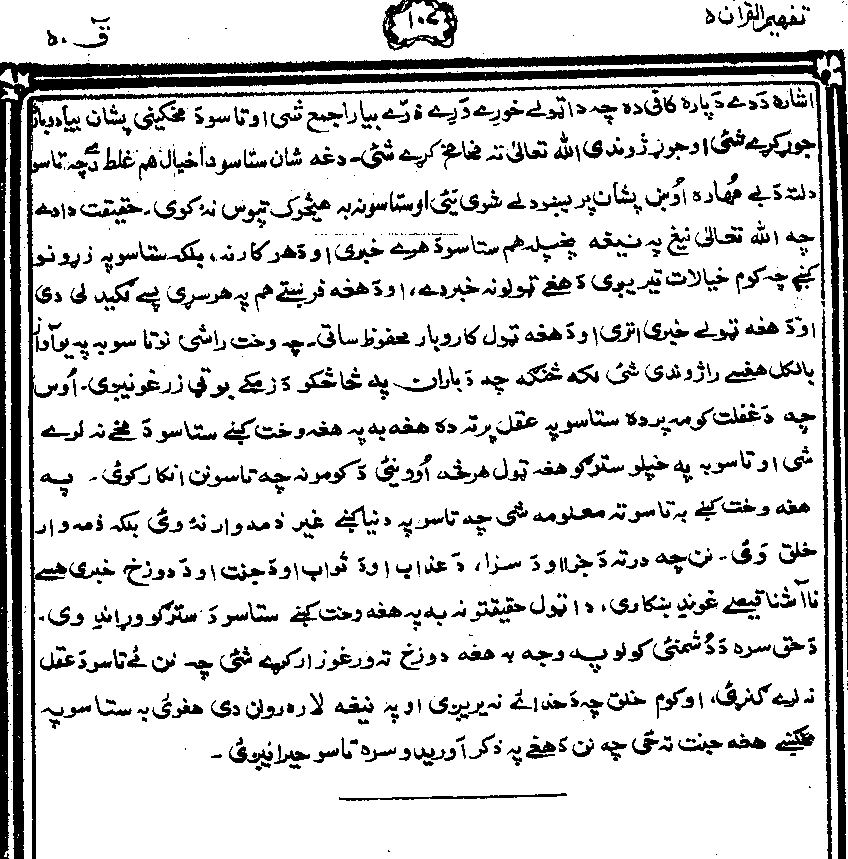 تفهیم القرآن ۵
۱۰۷
قٓ ۵۰
اشاره دَ دے دَ پاره کافی ده چه دا ټولے خورے دَرے ذرّے بیا راجمع شی او تاسو دَ مخکینی پشان بیا دوباره
جوړ کړے شئ او جوړ ژوندی الله تعالیٰ ته مخامخ کړے شئ۔ دغه شان ستاسو دا خیال هم غلط دے چه تاسو
دلته دَ بے مُهاره اُوښ پشان پریښودلے شوی یئی او ستاسو نه به هیڅوک تپوس نهٔ کوی۔ حقیقت دا دے
چه الله تعالیٰ نیغ په نیغه پخپله هم ستاسو دَ هرے خبری او دَ هر کار نه، بلکه ستاسو په زړونو
کښے چه کوم خیالات تیریږی دَ هغے ټولو نه خبر دے، او دَ هغه فریښتے هم په هر سړی پسے لګیدلی دی
او دَ هغه ټولے خبری اتری او دَ هغه ټول کاروبار محفوظ ساتی۔ چه وخت راشی نو تاسو به په یو آواز
بالکل هغسے راژوندی شئ لکه څنګه چه دَ باران په څاڅکو دَ زمکے بوټی زرغونیږی۔ اُوس
چه دَ غفلت کومه پرده ستاسو په عقل پرته ده هغه به په هغه وخت کښے ستاسو دَ مخے نه لرے
شی او تاسو به په خپلو سترګو هغه ټول هرڅه اُووینئ دَ کومو نه چه تاسو نن انکار کوئ۔ په
هغه وخت کښے به تاسو ته معلومه شی چه تاسو په دنیا کښے غیر ذمه دوار نهٔ وئ بلکه ذمه وار
خلق وئ۔ نن چه درته دَ جزا او دَ سزا، دَ عذاب او دَ ثواب او دَ جنت او دَ دوزخ خبری هسے
ناآشنا قیصے غوندے ښکاری، دا ټول حقیقتونه به په هغه وخت کښے ستاسو دَ سترګو وړاندے وی۔
دَ حق سره دَ دُشمنئ کولو په وجه به هغه دوزخ ته ورغوزار کړے شئ چه نن ئے تاسو دَ عقل
نه لرے ګنړئ، او کوم خلق چه دَ خدائے نه یریږی او په نیغه لاره روان دی هغوئ به ستاسو په
مخکښے هغه جنت ته ځی چه نن دَ هغے په ذکر آوریدو سره تاسو حیرانیږئ۔